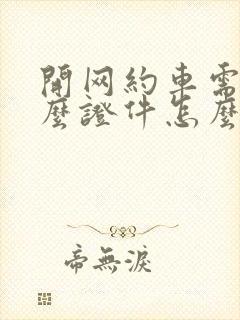 開网約車需
麼證件怎麼
帝無淚